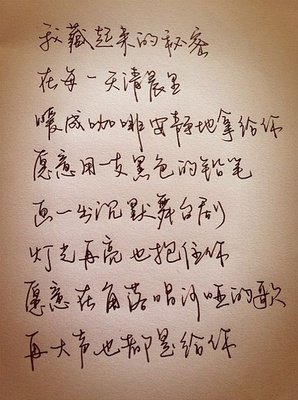 我藏起来的秘密
在每一天清晨里
暖成咖啡安静地拿给你
愿意用一支黑色的铅笔
画一出沉默舞台剧
灯光再亮也抱住你
愿意在角落唱沙哑的歌
再大声也都是给你